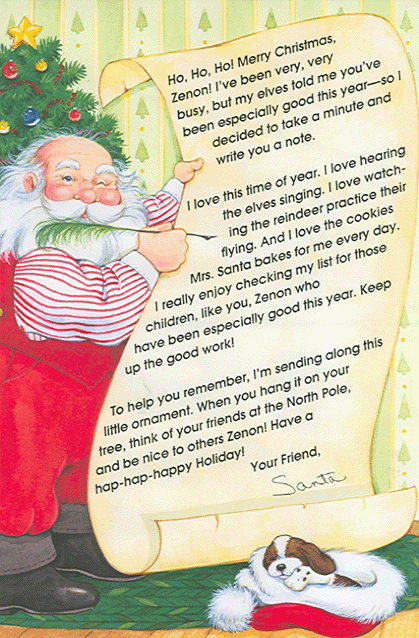 Ho, Ho, Ho! Merry Christmas,
Zenon! I've been very, very
busy, but my elves told me you've
been especially good this year—so I
decided to take a minute and
write you a note.
I love this time of year. I love hearing
the elves singing. I love watch-
ing the reindeer practice their
flying. And I love the cookies
Mrs. Santa bakes for me every day.
I really enjoy checking my list for those
children, like you, Zenon who
have been especially good this year. Keep
up the good work!
To help you remember, I'm sending along this
little ornament. When you hang it on your
tree, think of your friends at the North Pole,
and be nice to others Zenon! Have a
hap-hap-happy Holiday!
Your Friend,
Santa